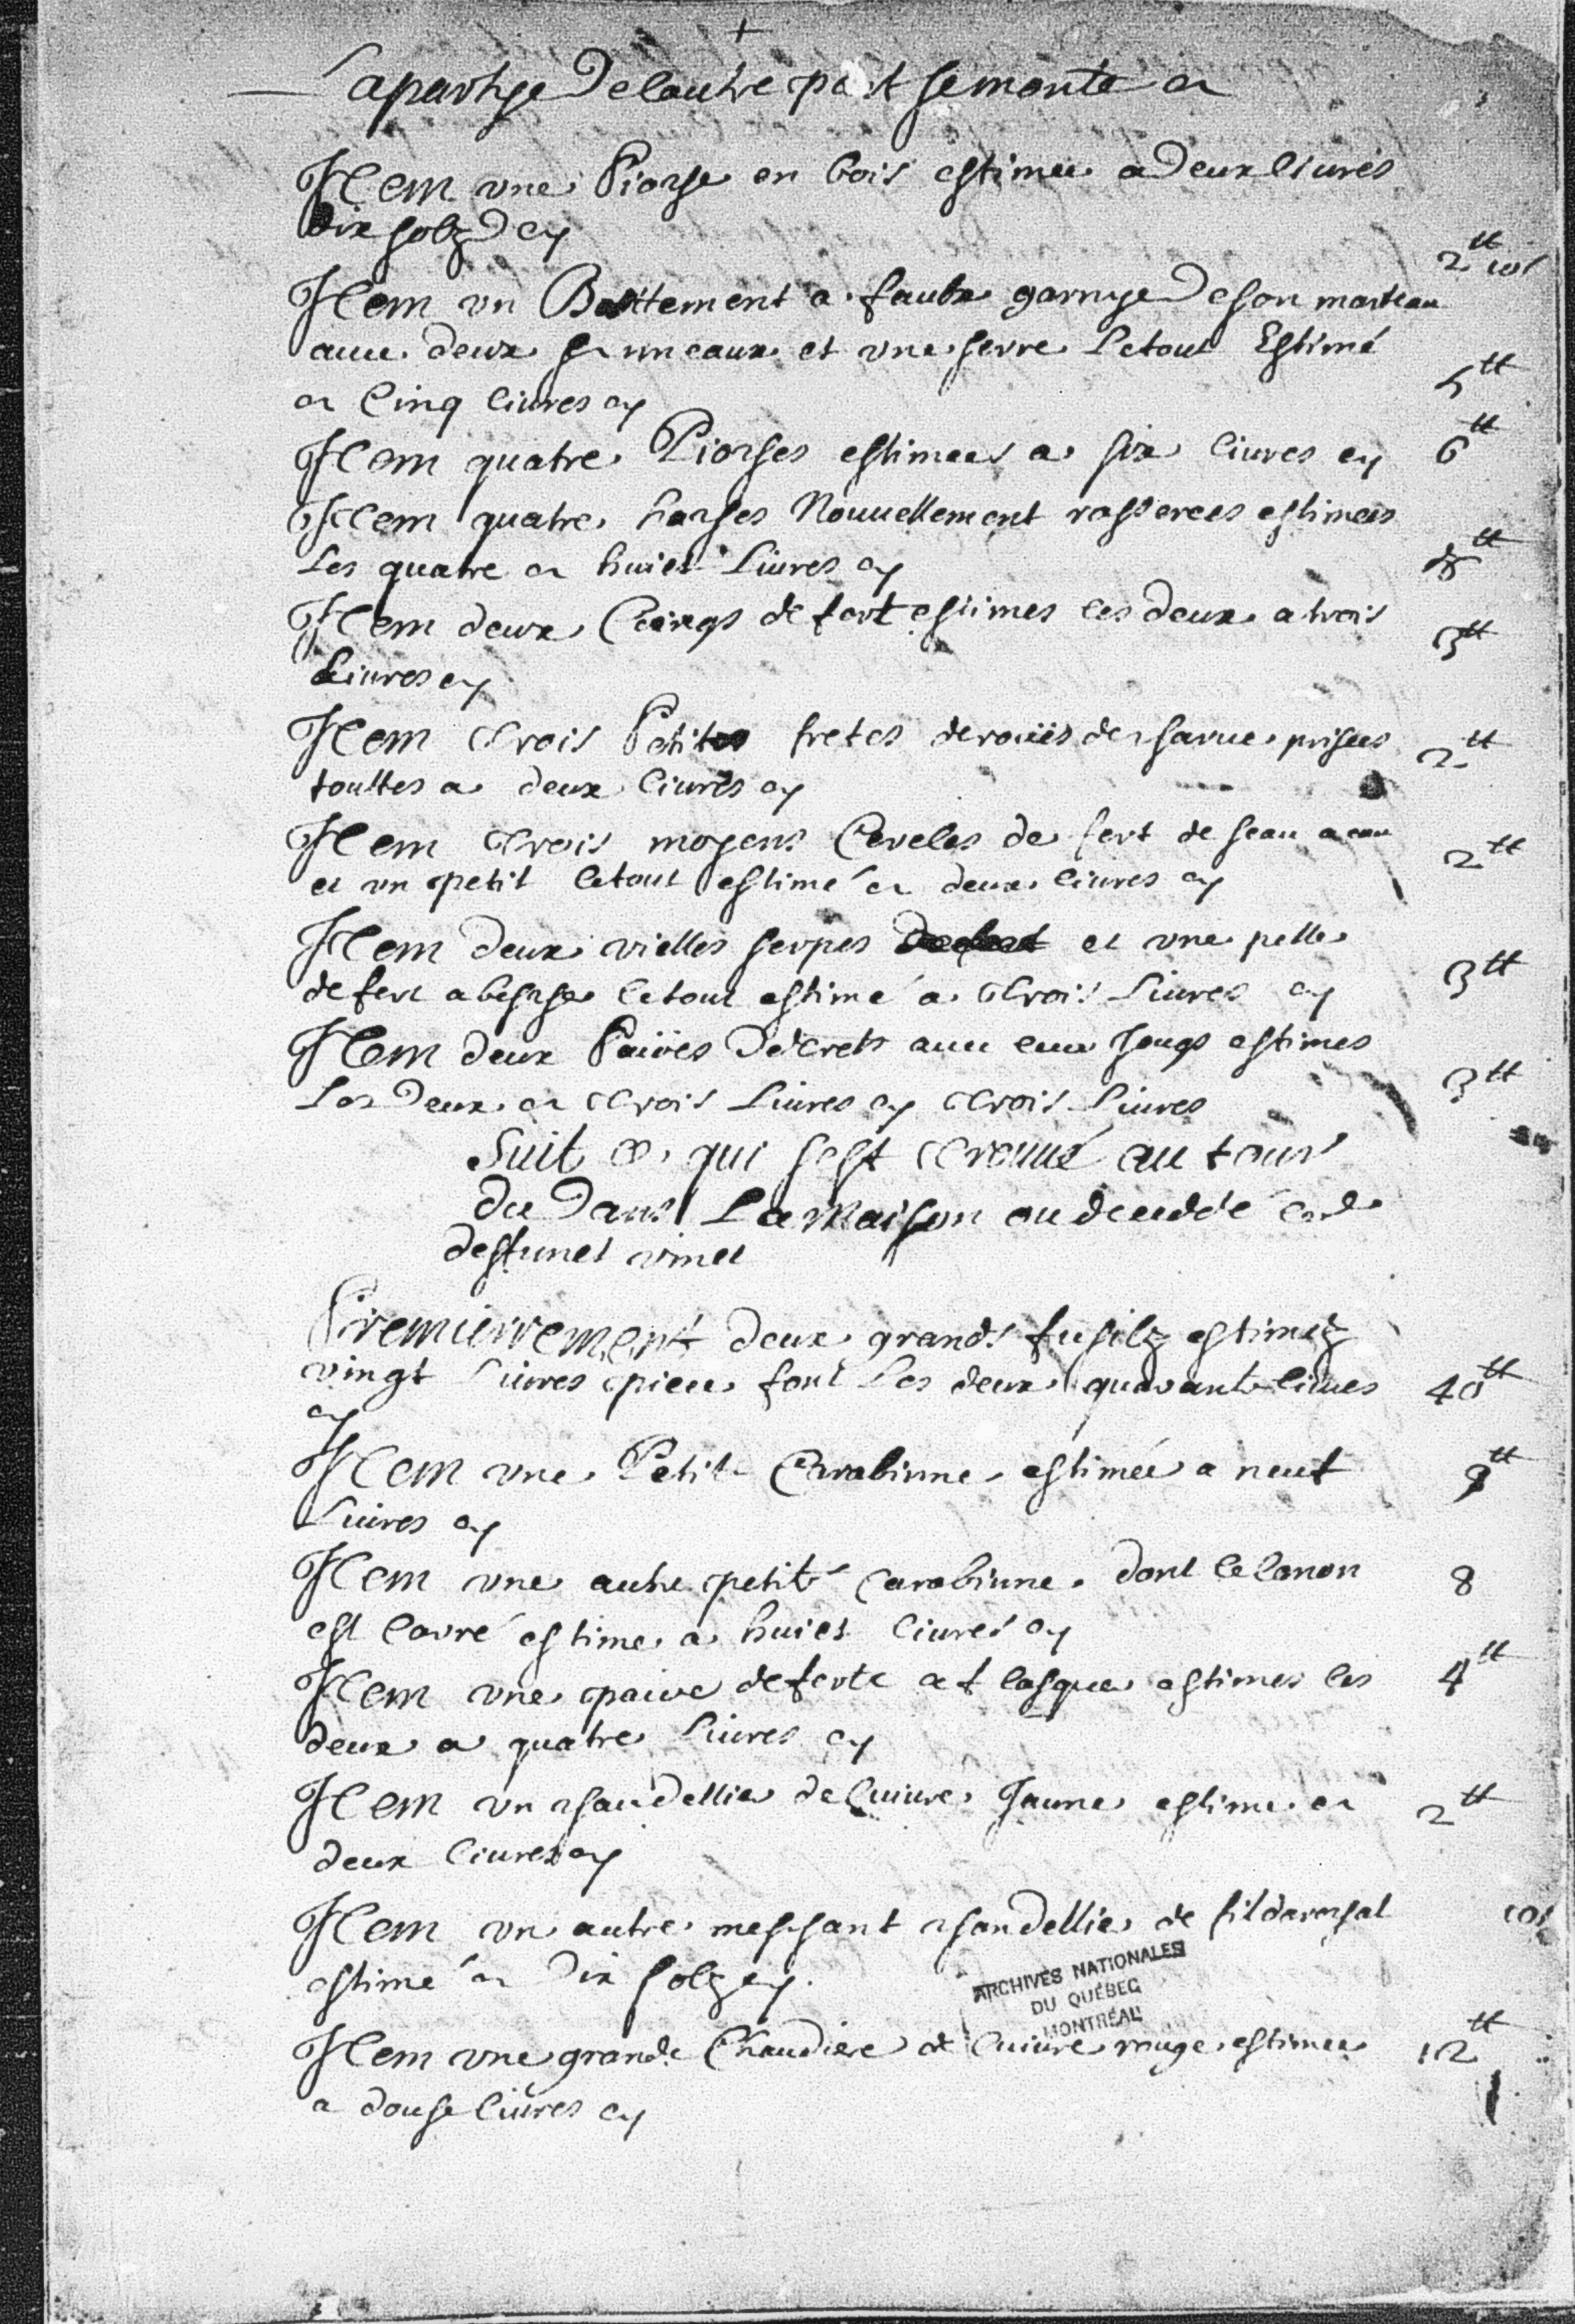 +
La partye de lautre part se monte a
Item une Piorse en bois estimee a deux livres
dix solz cy 2tt 10s
Item un Battement a faulx garnye de son marteau
avec deux et une serre le tout Estimé
a Cinq livres cy 5tt
Item quatre Piorses estimees a six livres cy 6tt
Item quatre harses Nouvellement rasserees estimees
Les quatre a huict Livres cy 8tt
Item deux Coings de fert estimes les deux a trois
Livres cy 3tt
Item trois Petites fretes de roües de charue prisees
touttes a deux livres cy 2tt
Item trois moyens Cercles de fert de seau a eau
et un petit le tout estimé a deux livres cy 2tt
Item deux vielles serpes et une pelle
de fert a bescher le tout estimé a trois Livres cy 3tt
Item deux Paires avec Jougs estimes
Les deux a trois Livres cy trois Livres 3tt
Suit ce qui sest trouvé au tour
du Dans La Maison au deccedé
desfunct vinet
Premierrement deux grands fusilz estimez
vingt Livres piece font Les deux quarante livres 40tt
cy
Item une Petit Carabinne estimée a neuf 9tt
Livres cy
Item une autre petite Carabinne dont le Canon 8
est Carré estime a huict livres cy
Item une paire de flasque estimes les 4tt
deux a quatre Livres cy
Item un chandellie de Cuivre Jaune estime a 2tt
deux livres cy
Item un autre meschant chandellie de fil darchal 10s
estimé a Dix solz cy
ARCHIVES NATIONALES
DU QUÉBEC
MONTRÉAL
Item une grande Chaudiere de Cuivre rouge estimee 12tt
a douse livres cy